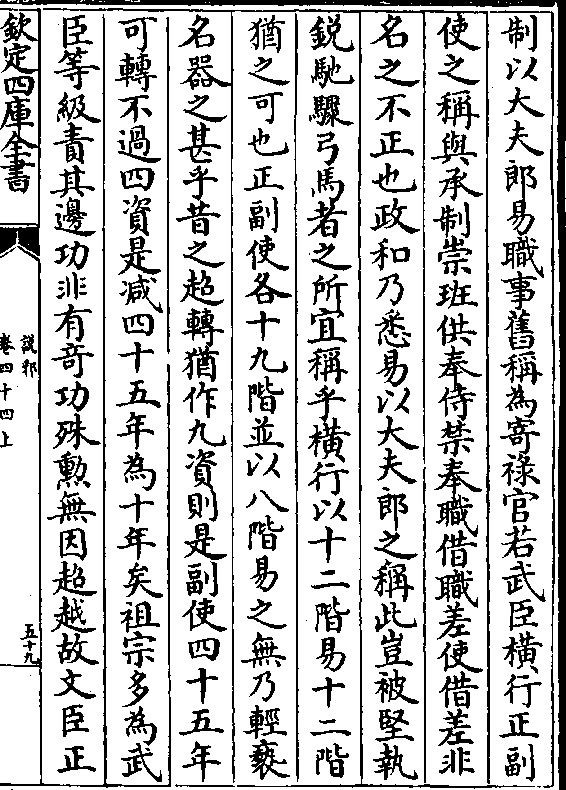 制以大夫郎易職事舊稱為寄祿官若武臣横行正副
使之稱與承制崇班供奉侍禁奉職借職差使借差非
名之不正也政和乃悉易以大夫郎之稱此豈被堅執
鋭馳驟弓馬者之所宜稱乎橫行以十二階易十二階
猶之可也正副使各十九階並以八階易之無乃輕褻
名器之甚乎昔之超轉猶作九資則是副使四十五年
可轉不過四資是減四十五年為十年矣祖宗多為武
臣等級責其邊功非有竒功殊勲無因超越故文臣正
欽定四庫全書
說郛
卷四十四上
五十九